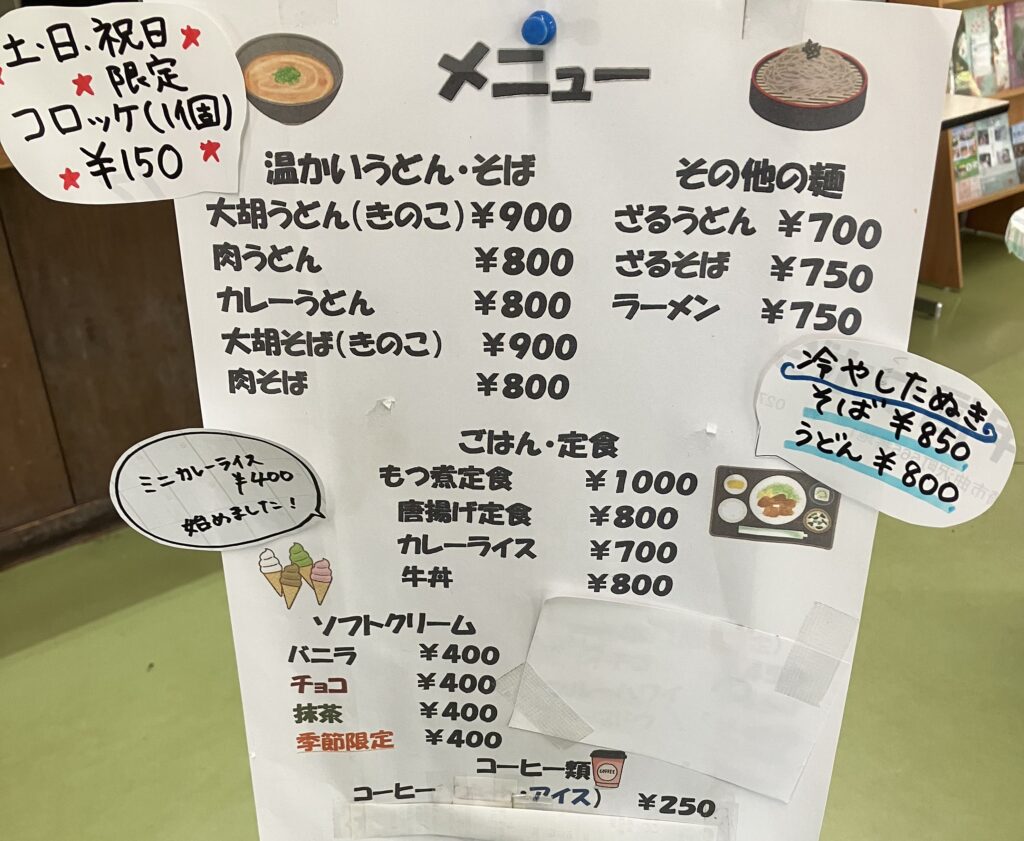 土・日・祝日
限定
コロッケ(1個)
¥150
メニュー
温かいうどん・そば
大胡うどん(きのこ) ¥900
肉うどん ¥800
カレーうどん ¥800
大胡そば(きのこ) ¥900
肉そば ¥800
その他の麺
ざるうどん ¥700
ざるそば ¥750
ラーメン ¥750
冷やしたぬき
そば ¥850
うどん ¥800
ごはん・定食
もつ煮定食 ¥1000
唐揚げ定食 ¥800
カレーライス ¥700
牛丼 ¥800
ミニカレーライス
¥400
始めました!
ソフトクリーム
バニラ ¥400
チョコ ¥400
抹茶 ¥400
季節限定 ¥400
コーヒー類
COFFEE
コーヒー ・アイス) ¥250